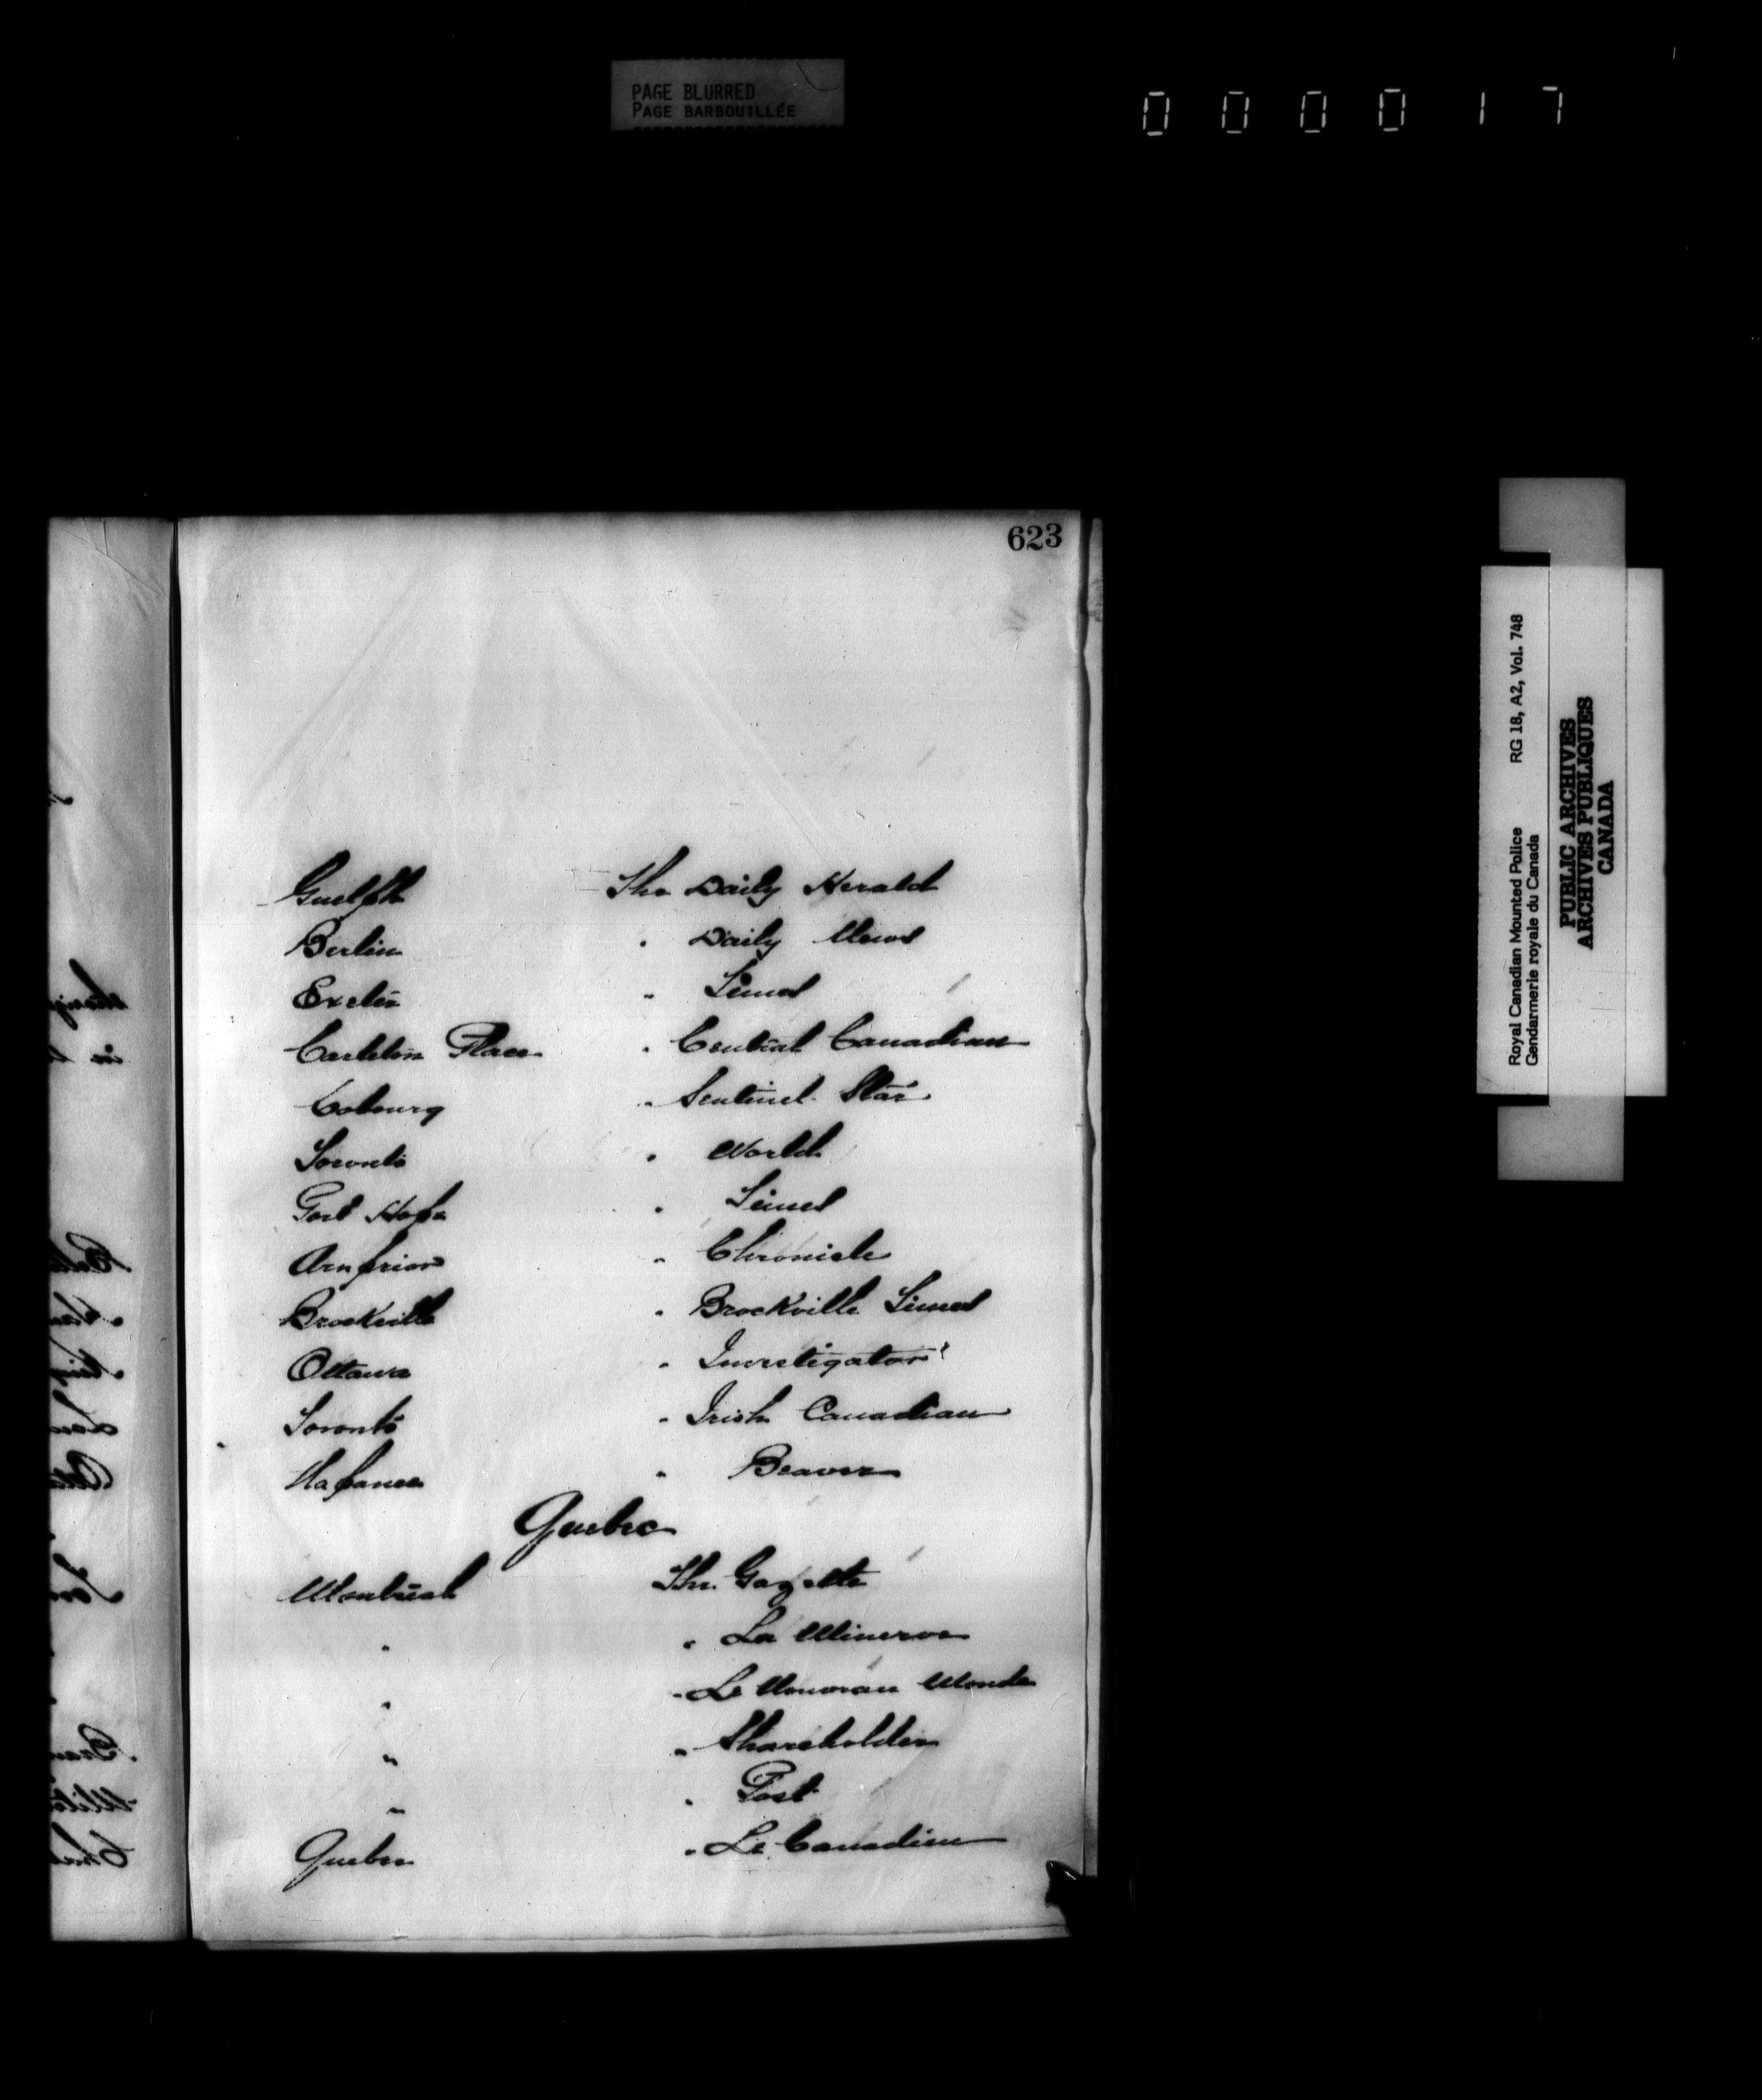 PAGE BLURRED
PAGE BARBOUILLÉE
0 0 0 0 1 7
623
Guelph The Daily Herald
Berlin " Daily News
Exeter " Times
Carleton Place " Central Canadian
Cobourg " Sentinel Star
Toronto " World
Port Hope " Times
Arnprior " Chronicle
Brockville " Brockville Times
Ottawa " Investigator
Toronto " Irish Canadian
Napanee " Beaver
Quebec
Montreal The Gazette
" " La Minerve
" " Le Nouveau Monde
" " Shareholder
" " Post
Quebec " Le Canadien
Royal Canadian Mounted Police RG 18, A2, Vol. 748
Gendarmerie royale du Canada
PUBLIC ARCHIVES
ARCHIVES PUBLIQUES
CANADA